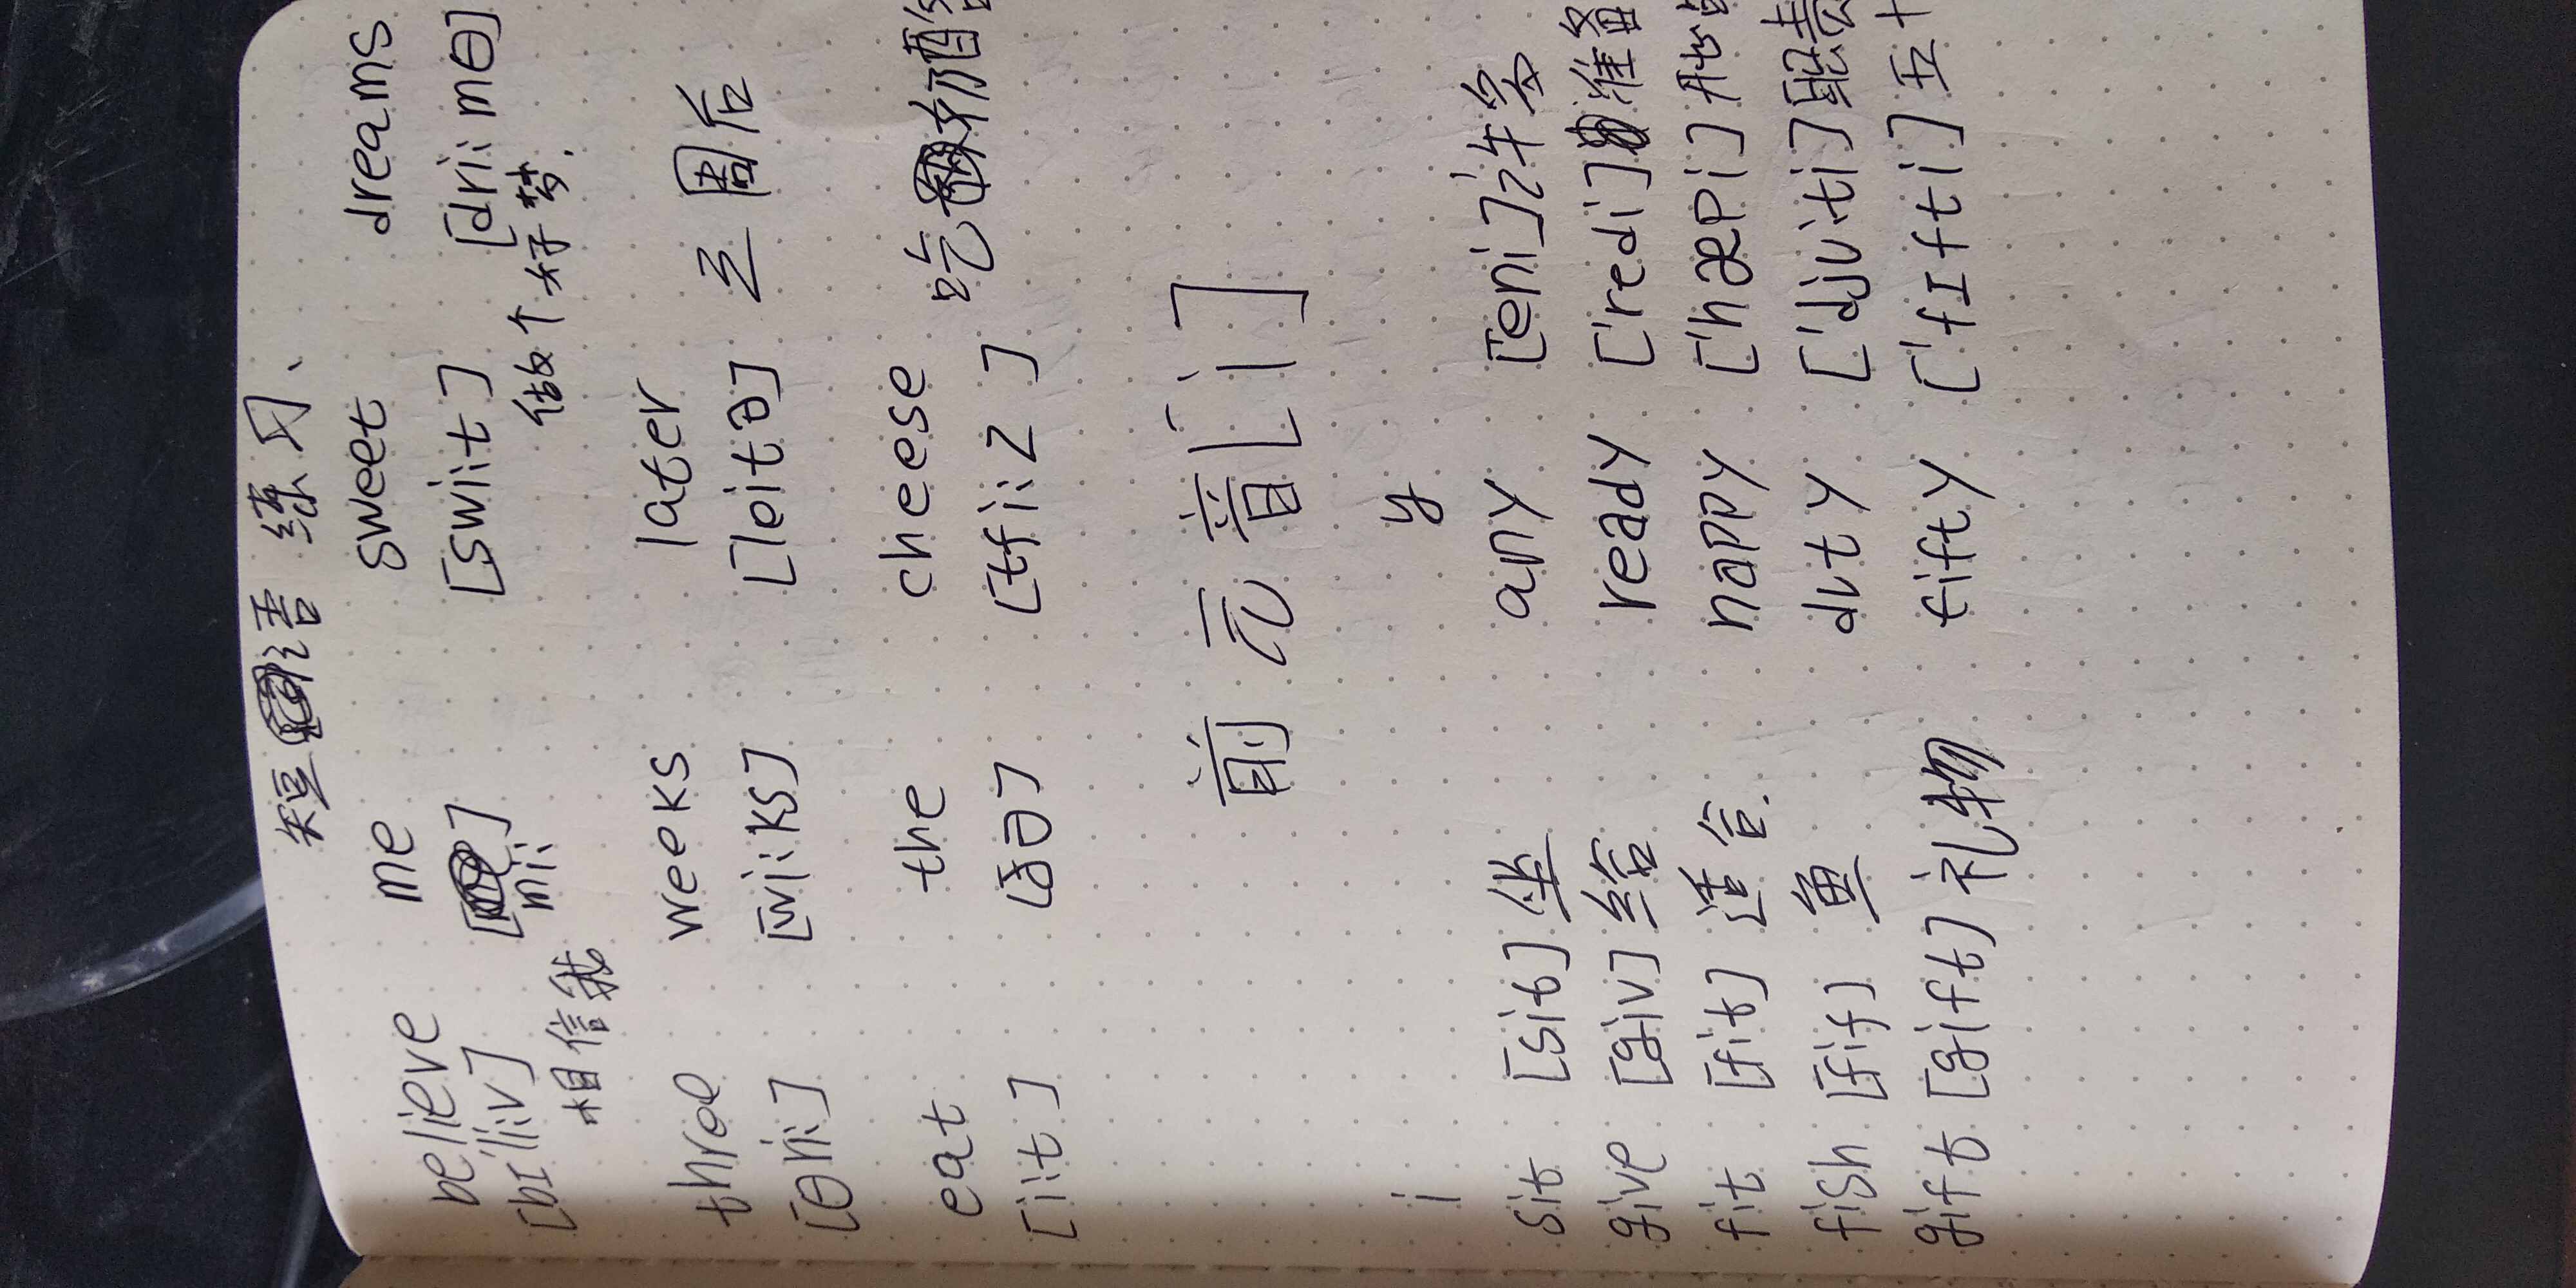 短语 练习、
believe me sweet dreams
[bɪ'li:v] [mi:] [swi:t] [dri:mθ]
相信我 做个好梦.
three weeks later
[θri:] [wi:ks] [leitə] 三周后
eat the cheese 吃奶酪
[i:t] [ðə] [tʃi:z]
前元音[i]
i y
sit [sit] 坐 any ['eni] 许多
give [giv] 给 ready ['redi] 准备
fit [fit] 适合. happy ['hæpi]
fish [fiʃ] 鱼 duty ['dju:ti] 职责
gift [gift] 礼物 fifty ['fɪfti] 五十